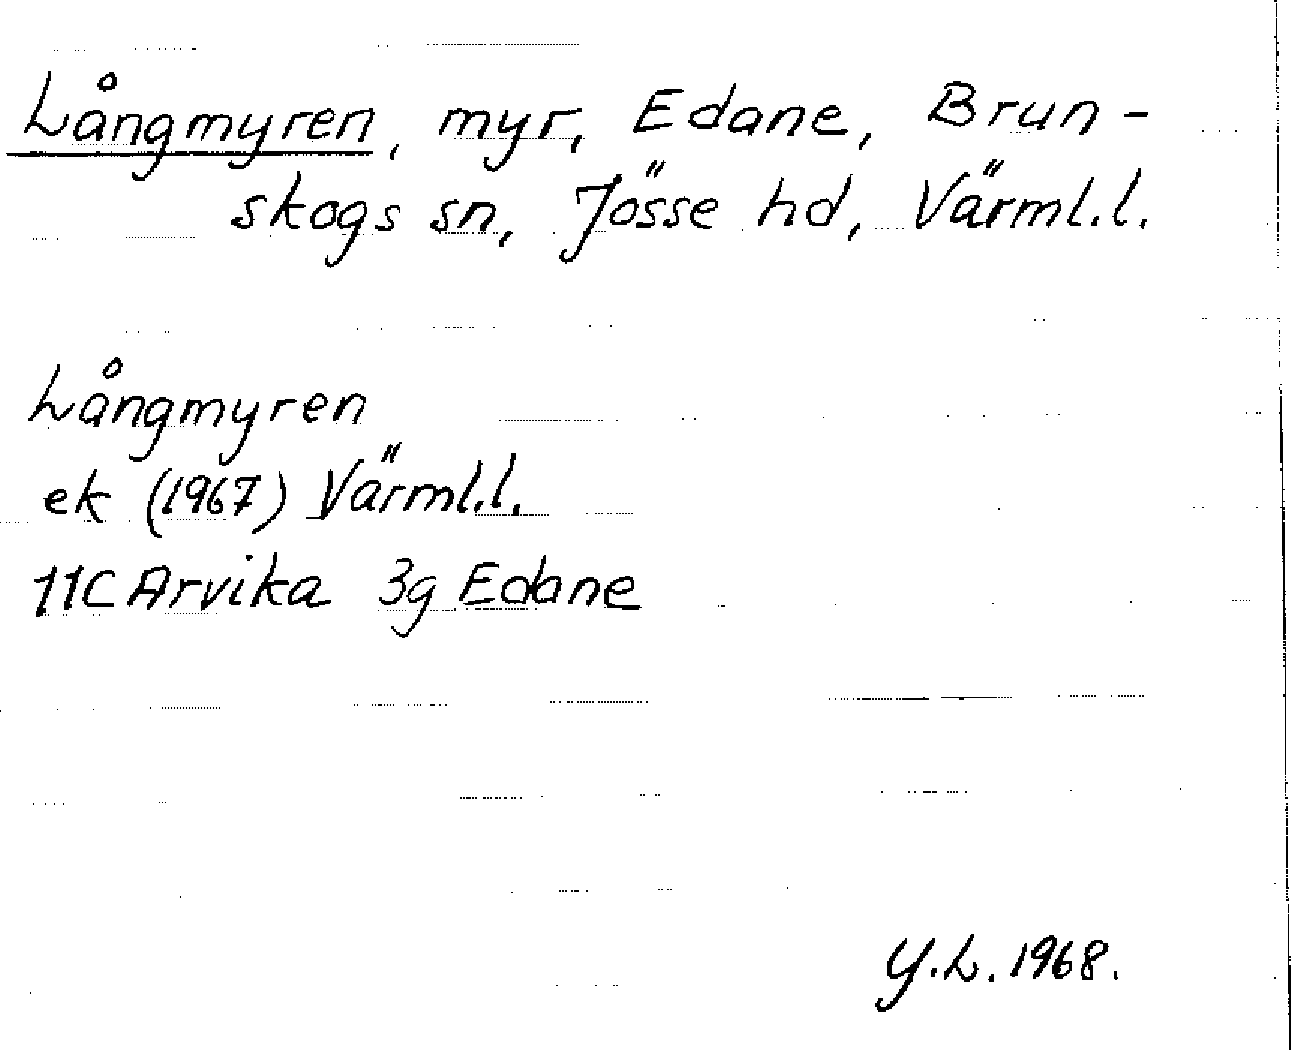 Långmyren, myr, Edane, Brun-
skogs sn, Jösse hd, Värml.l.
Långmyren
ek (1967) Värml.l.
11C Arvika 3g Edane
Y.L. 1968.